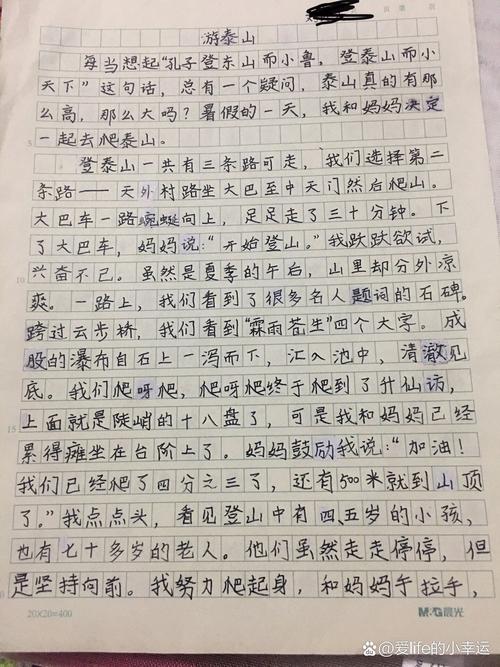 游泰山
每当想起“孔子登东山而小鲁，登泰山而小
天下”这句话，总有一个疑问，泰山真的有那
么高，那么大吗？暑假的一天，我和妈妈决定
一起去爬泰山。
登泰山一共有三条路可走，我们选择第二
条路——天外村路坐大巴至中天门然后爬山。
大巴车一路蜿蜒向上，足足走了三十分钟。下
了大巴车，妈妈说：“开始登山。”我跃跃欲试，
兴奋不已。虽然是夏季的午后，山里却分外凉
爽。一路上，我们看到了很多名人题词的石碑。
跨过云步桥，我们看到“霖雨苍生”四个大字。成
股的瀑布自石上一泻而下，汇入池中，清澈见
底。我们爬呀爬，爬呀爬终于爬到了升仙访，
上面就是陡峭的十八盘了，可是我和妈妈已经
累得瘫坐在台阶上了。妈妈鼓励我说：“加油！
我们已经爬了四分之三了，还有500米就到山顶
了。”我点点头，看见登山中有四、五岁的小孩，
也有七十多岁的老人。他们虽然走走停停，但
是坚持向前。我努力爬起身，和妈妈手拉手，
20×20=400
M&G晨光
Baidu百科 @爱life的小幸运